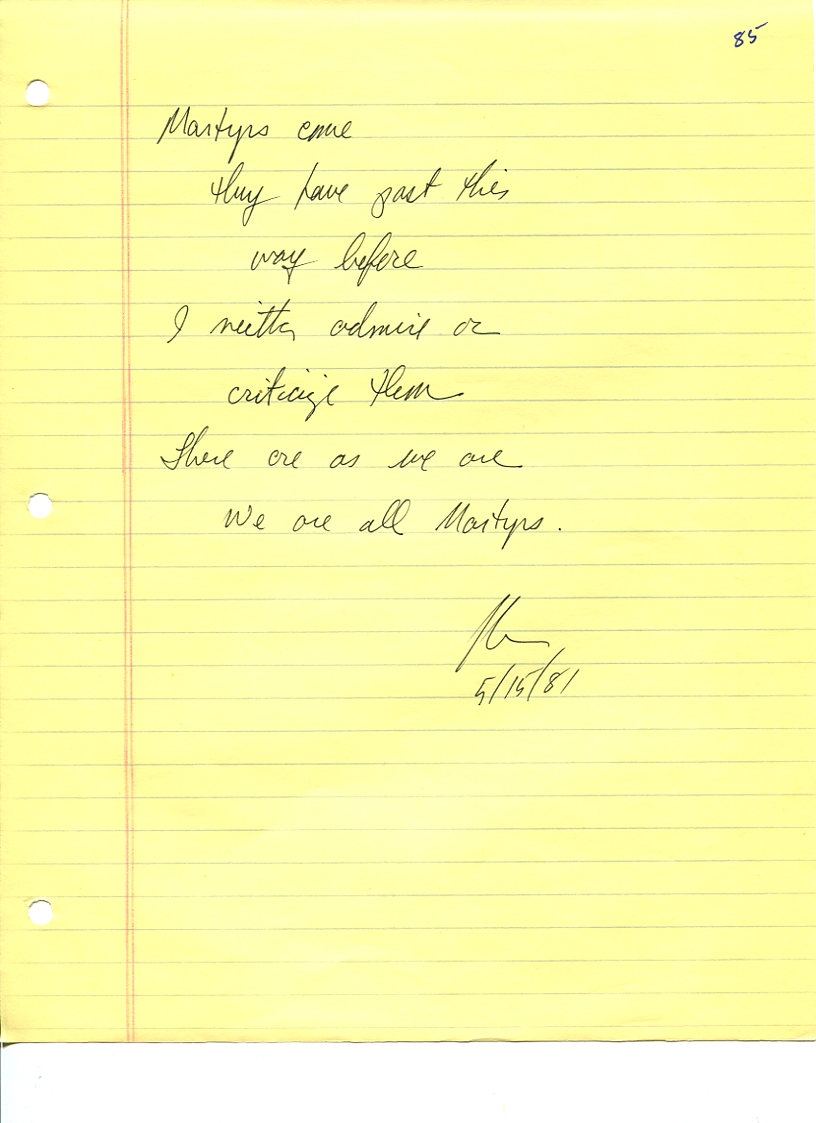 85
Martyrs come
they have past this
way before
I neither admire or
criticize them
There are as we are
We are all Martyrs.
5/15/81